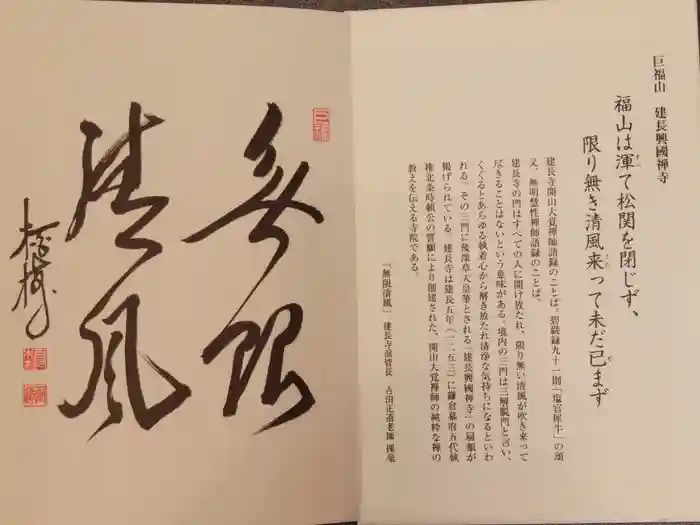 巨福山　建長興國禅寺
福山は渾て松関を閉じず、
限り無き清風来って未だ已まず
建長寺開山大覚禅師語録のことば。碧巌録九十一則「塩官犀牛」の頌
又、無明慧性禅師語録のことば。
建長寺の門はすべての人に開け放たれ、限り無い清風が吹き来って
尽きることはないという意味がある。境内の三門は三解脱門と言い、
くぐるとあらゆる執着心から解き放たれ清浄な気持ちになるといわ
れる。その三門に後深草天皇筆とされる「建長興國禅寺」の扁額が
掲げられている。建長寺は建長五年（一二五三）に鎌倉幕府五代執
権北条時頼公の誓願により創建された、開山大覚禅師の純粋な禅の
教えを伝える寺院である。
「無限清風」　建長寺派管長　吉田正道老師　揮毫
無限
清風